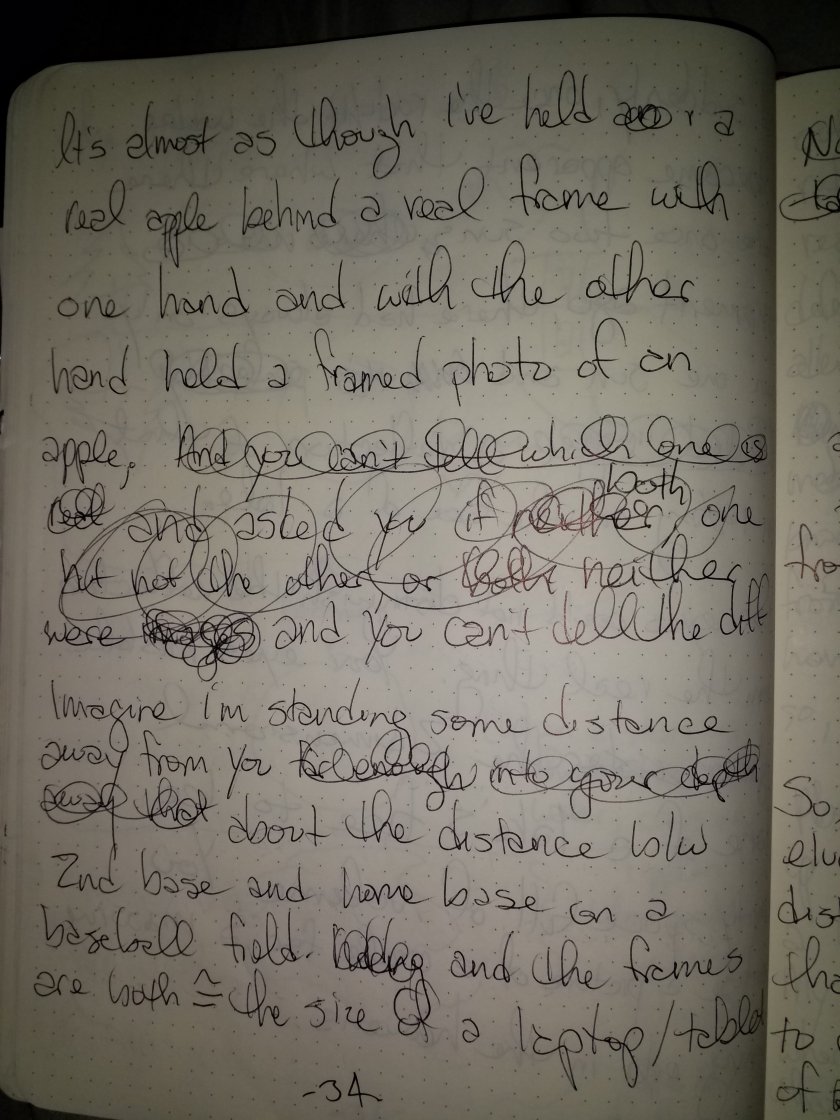 It's almost as though I've held a
real apple behind a real frame with
one hand and with the other
hand held a framed photo of an
apple, And you can't tell which one is
real and asked you if neither both, one
but not the other, or both neither
were images and you can't tell the diff
Imagine i'm standing some distance
away from you far enough into your depth
away that about the distance b/w
2nd base and home base on a
baseball field. and the frames
are both ≅ the size of a laptop/tablet
-34
No
So,
elu
dist
tha
to
of
fro